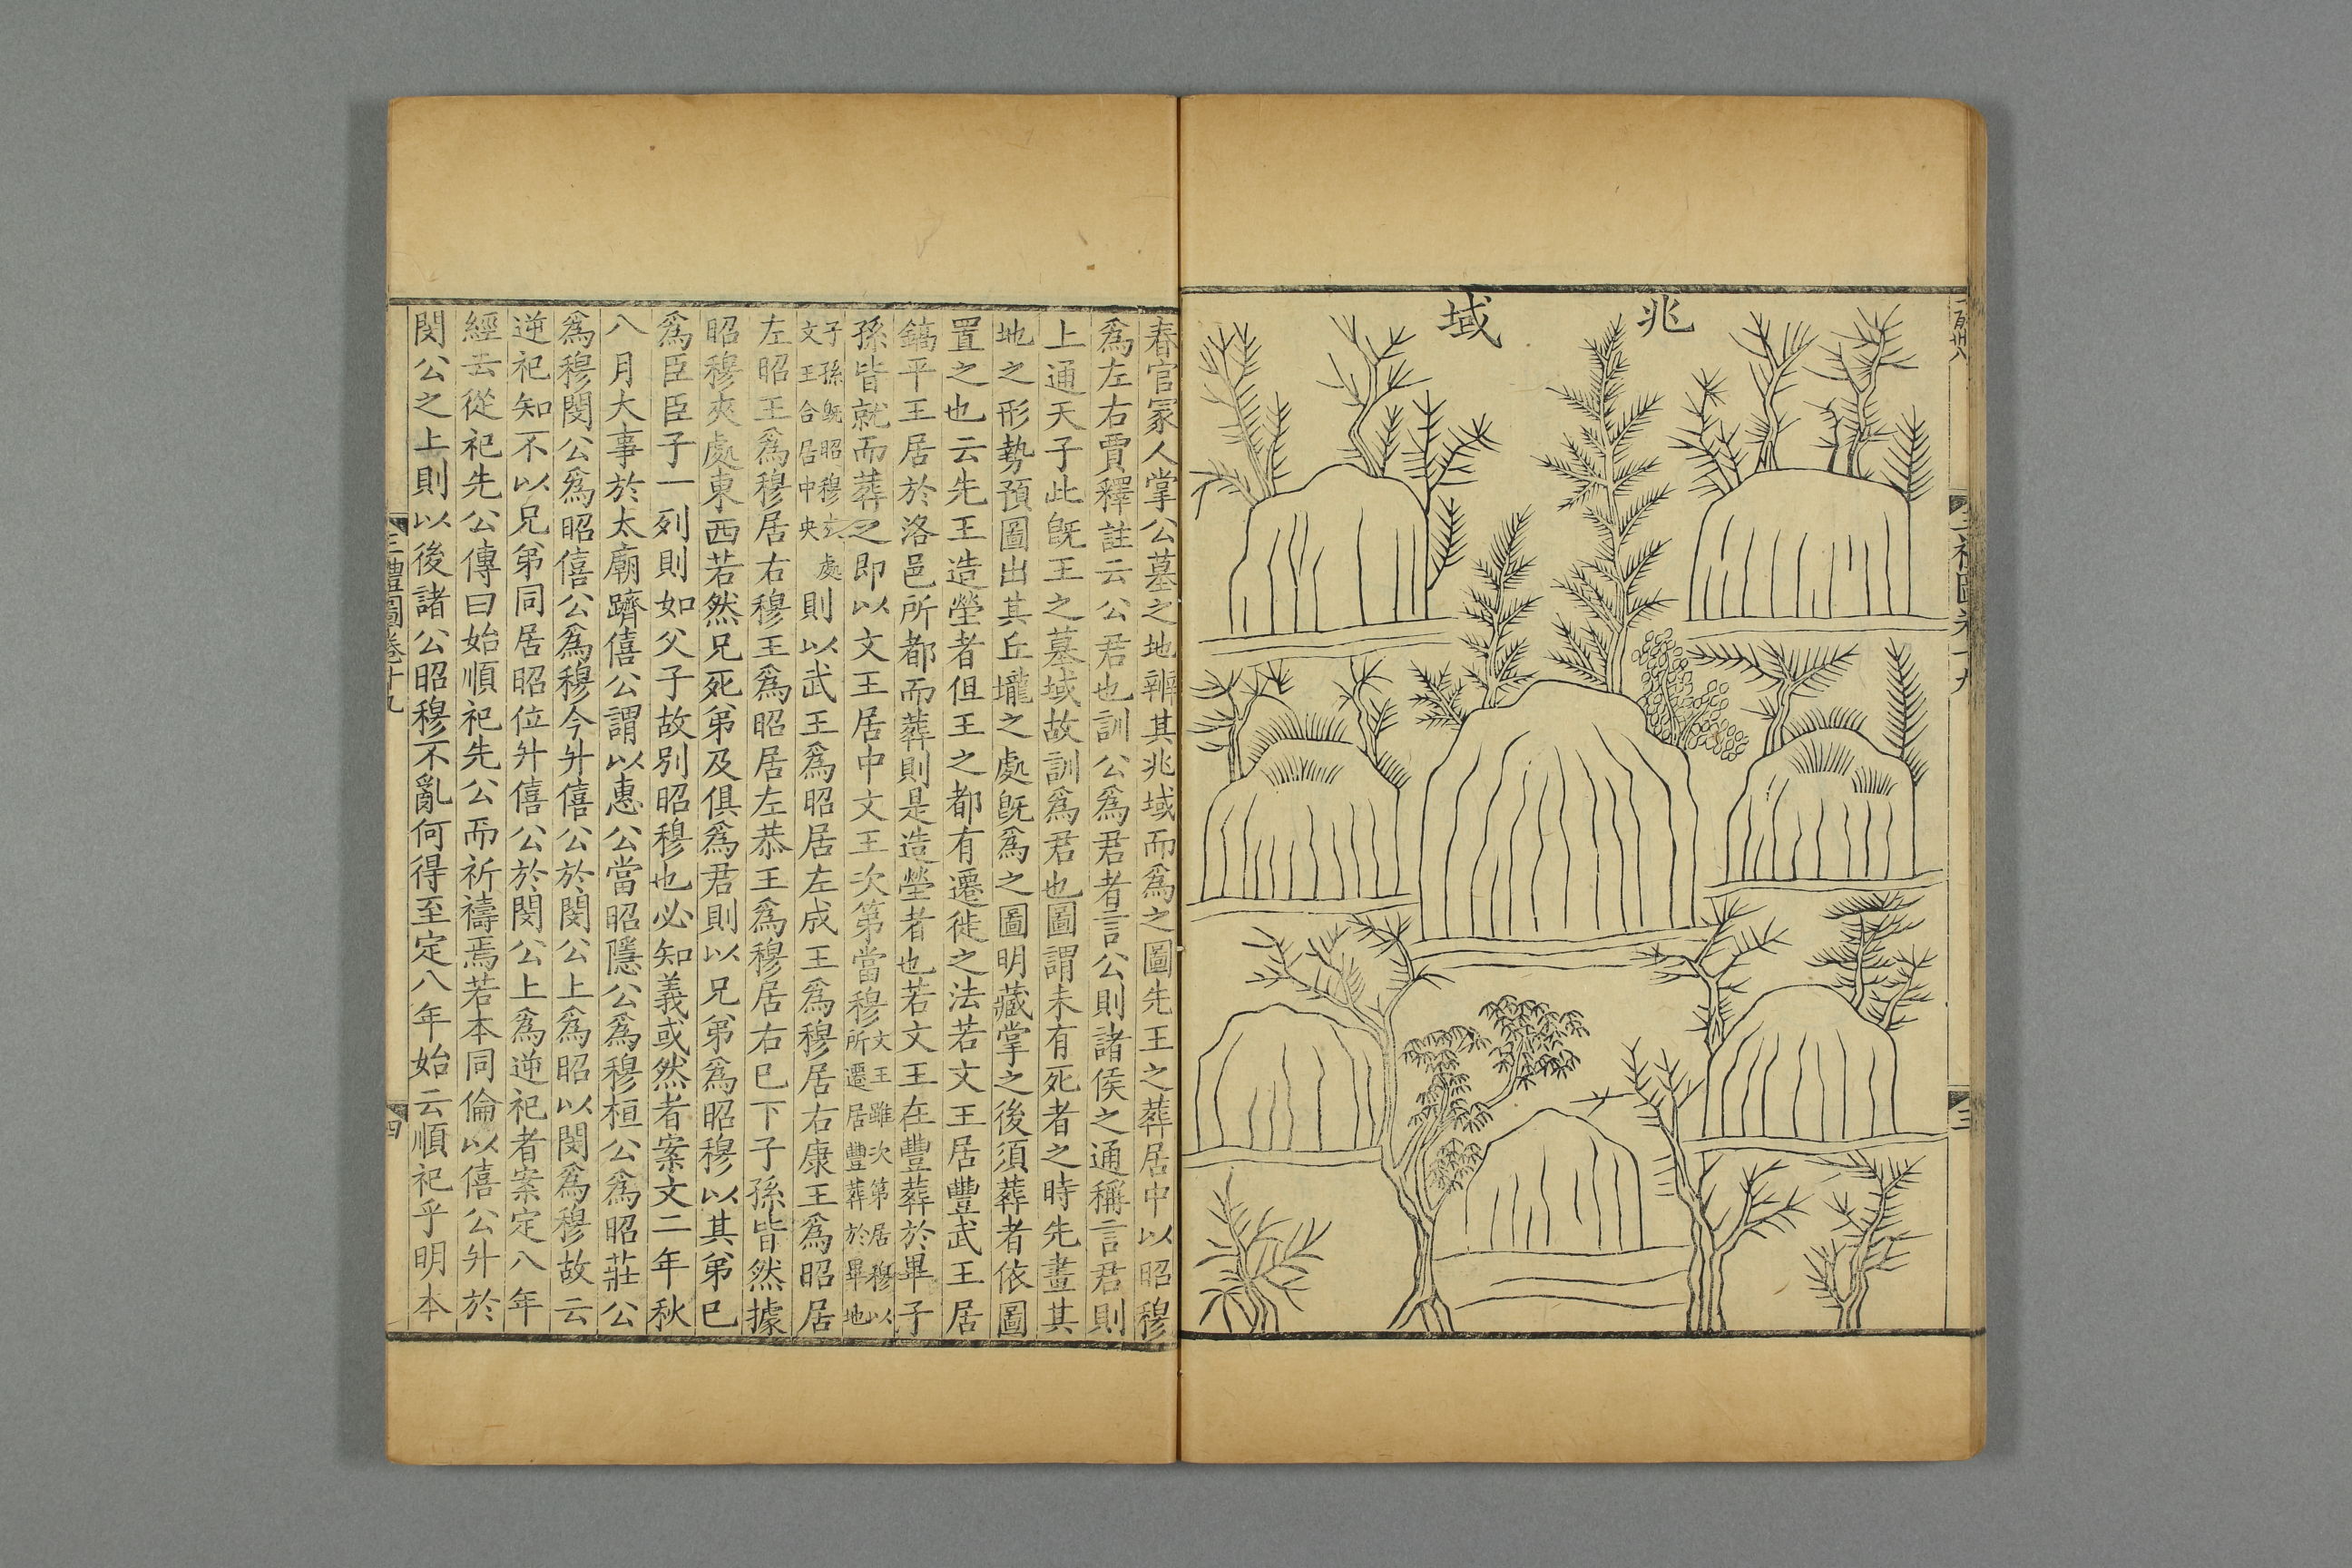 兆域
三
春官冢人掌公墓之地辨其兆域而爲之圖先王之葬居中以昭穆
爲左右賈釋註云公君也訓公爲君者言公則諸侯之通稱言君則
上通天子此旣王之墓域故訓爲君也圖謂未有死者之時先畫其
地之形勢預圖出其丘壠之處旣爲之圖明藏掌之後須葬者依圖
置之也云先王造塋者但王之都有遷徙之法若文王居豐武王居
鎬平王居於洛邑所都而葬則是造塋者也若文王在豐葬於畢子
孫皆就而葬之即以文王居中文王次第當穆文王雖次第居穆以所遷居豐葬於畢地
子孫旣昭穆玄處文王合居中央則以武王爲昭居左成王爲穆居右康王爲昭居
左昭王爲穆居右穆王爲昭居左恭王爲穆居右已下子孫皆然據
昭穆夾處東西若然兄死弟及俱爲君則以兄弟爲昭穆以其弟已
爲臣臣子一列則如父子故別昭穆也必知義或然者案文二年秋
八月大事於太廟躋僖公謂以惠公當昭隱公爲穆桓公爲昭莊公
爲穆閔公爲昭僖公爲穆今升僖公於閔公上爲昭以閔爲穆故云
逆祀知不以兄弟同居昭位升僖公於閔公上爲逆祀者案定八年
經云從祀先公傳曰始順祀先公而祈禱焉若本同倫以僖公升於
閔公之上則以後諸公昭穆不亂何得至定八年始云順祀乎明本
三禮圖卷十九
四